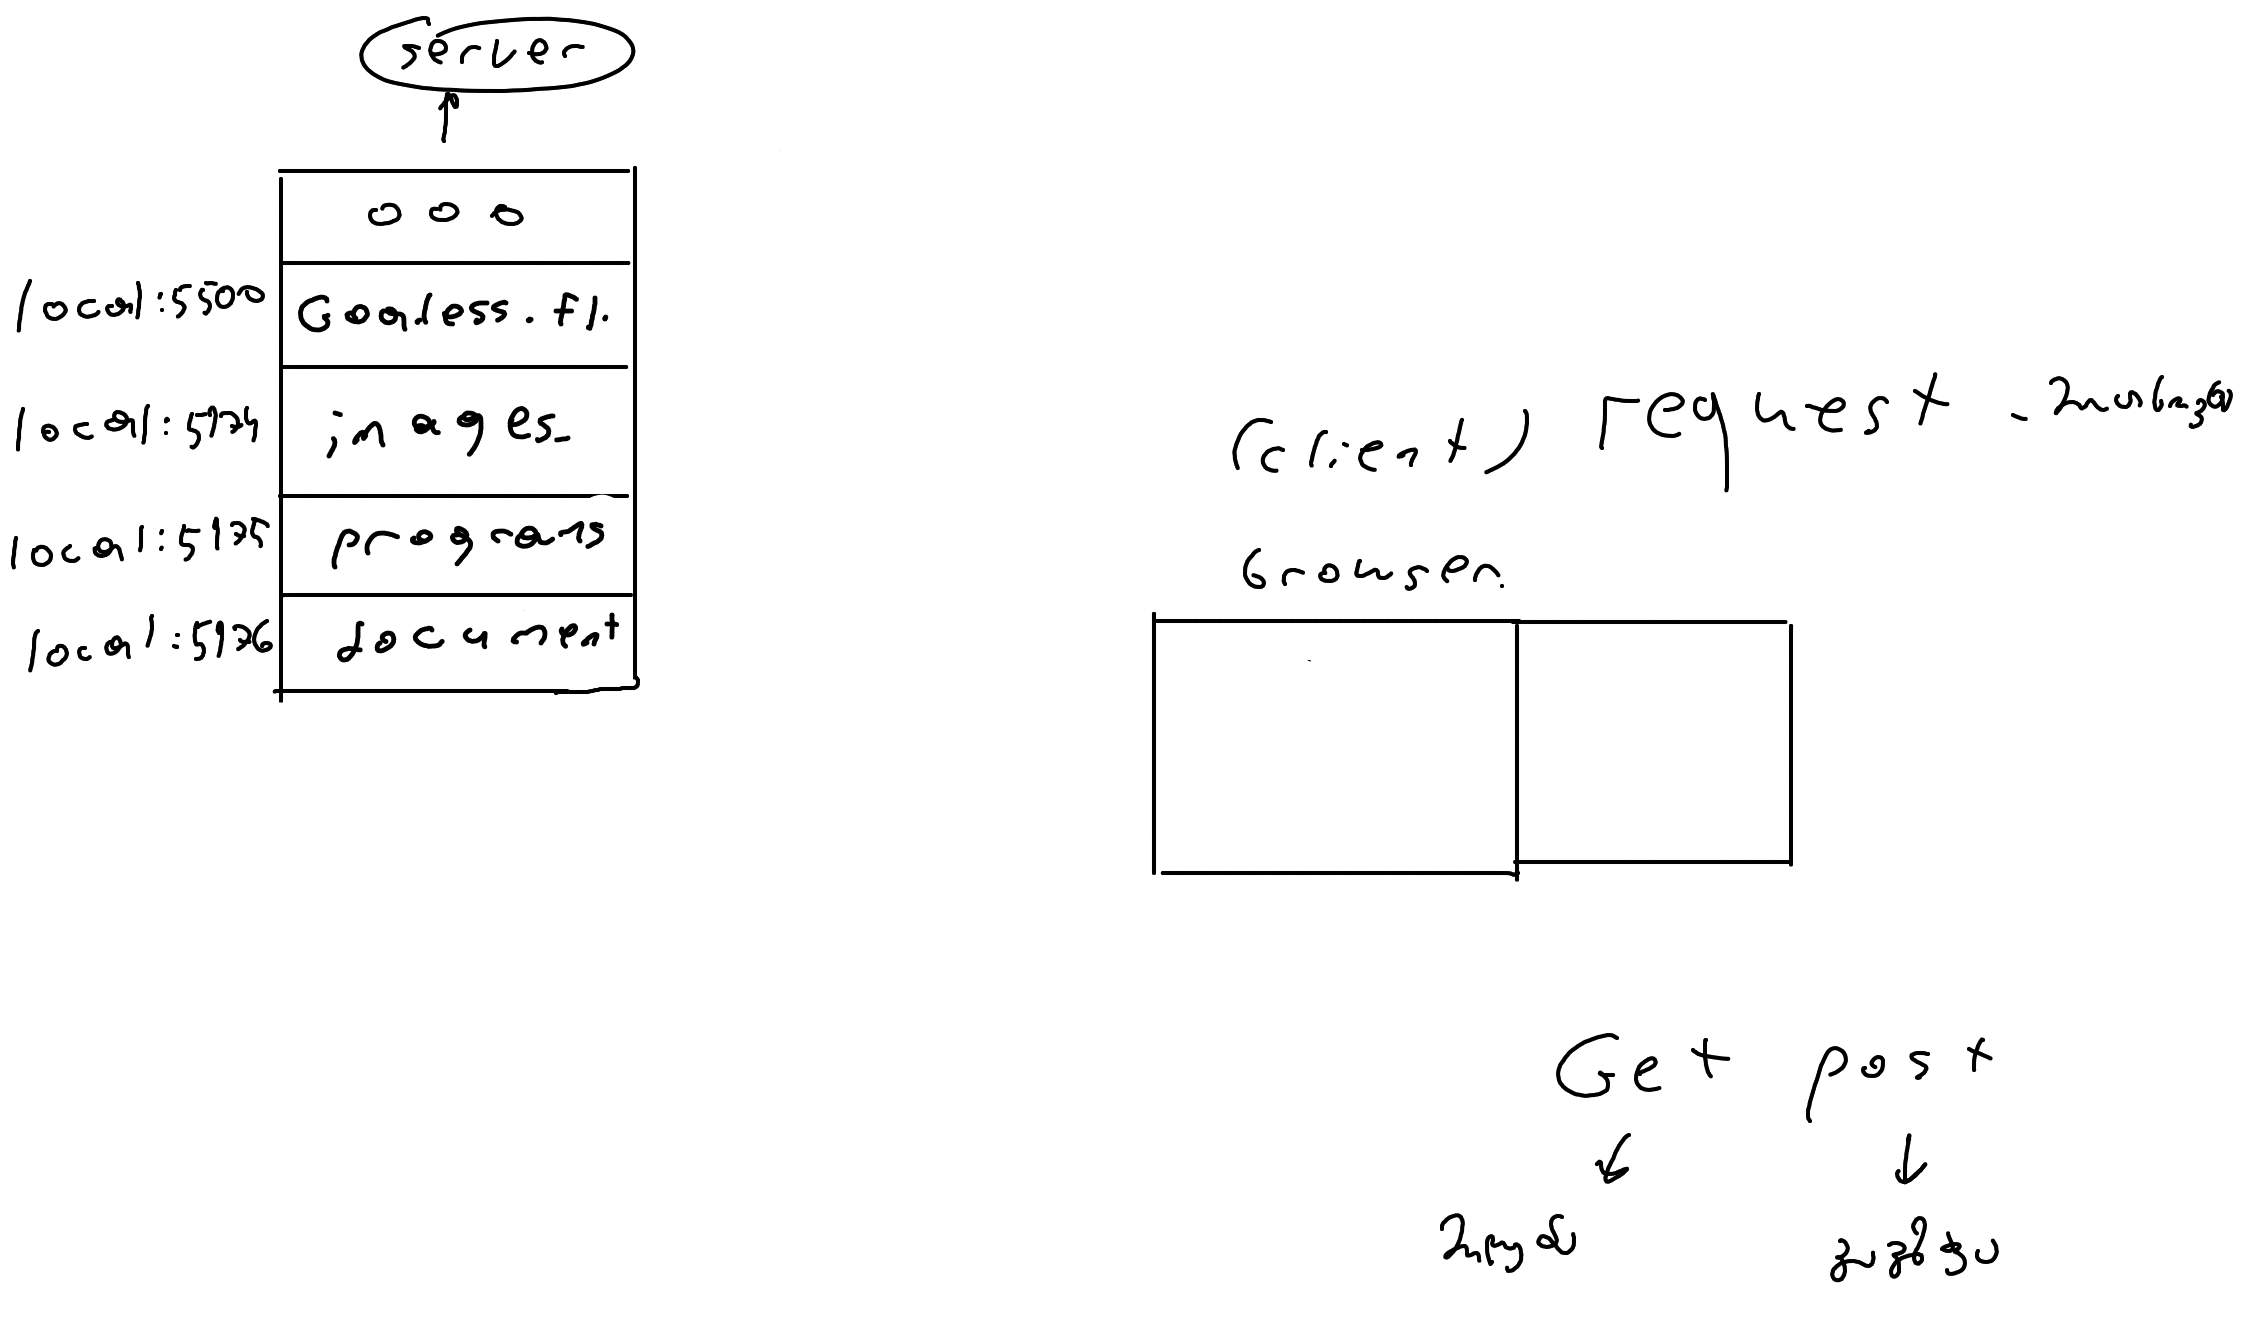 server
ooo
local:5500 Goaless.fl.
local:5174 images
local:5175 programs
local:5176 document
(client) request -
browser.
Get post